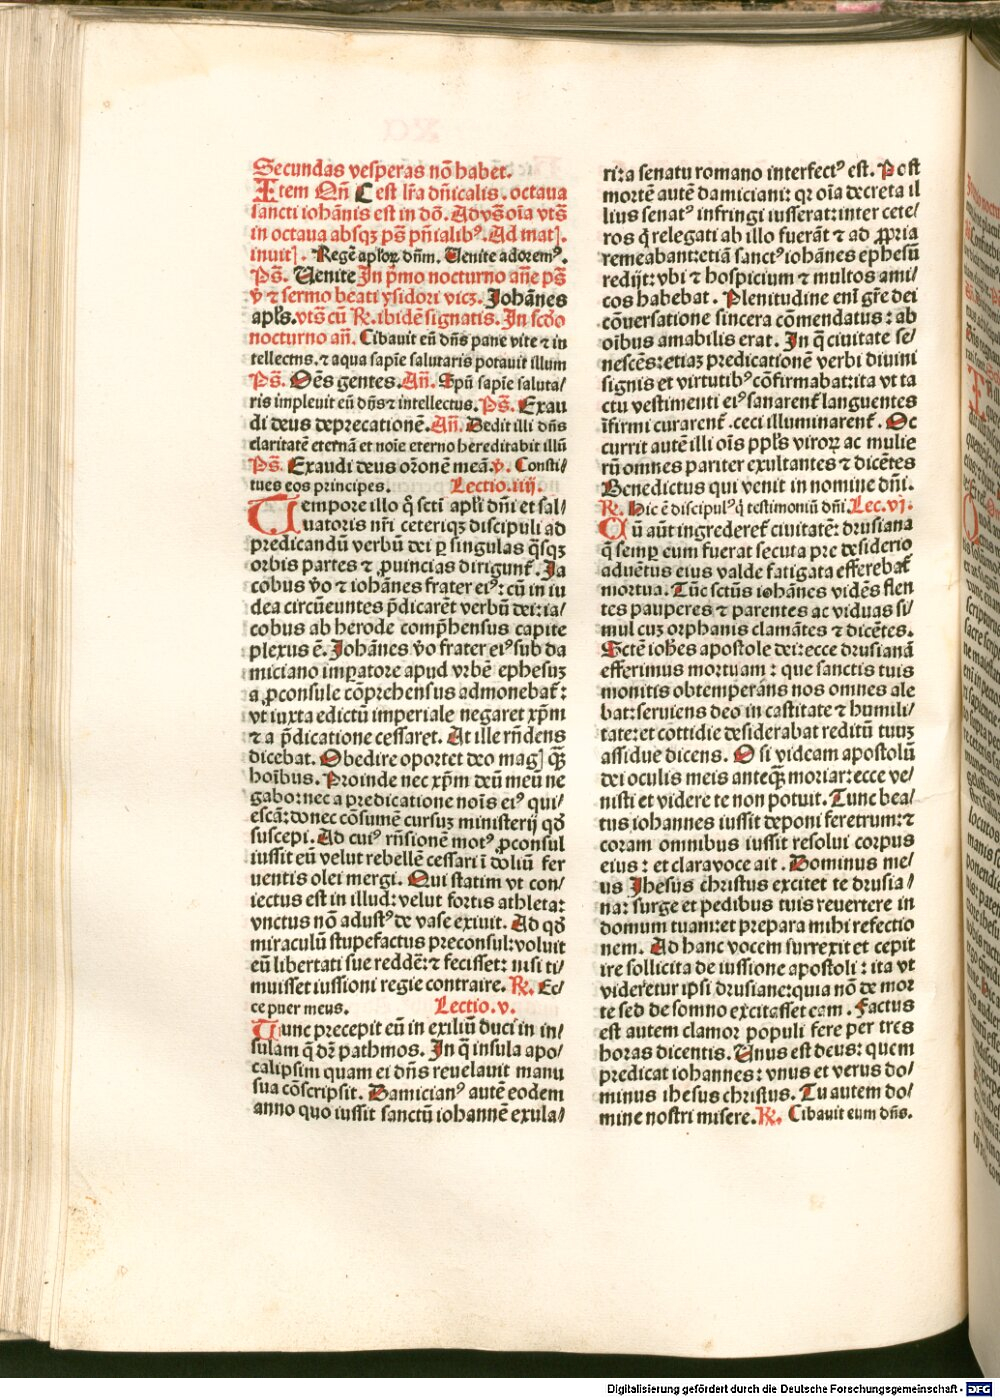 Secundas vesperas nō habet.
Item Qn̄ C est lr̄a dn̄icalis. octaua
sancti iohānis est in dō. Ad vs̄ oīa vts̄
in octaua absqȝ ps̄ pn̄ialibꝰ. Ad matꝭ.
inuitꝭ. Regē apl'oꝝ dn̄m. Uenite adoremꝰ.
Ps̄. Uenite In p̄mo nocturno an̄e ps̄
v̄ ⁊ sermo beati ysidori vicȝ. Johānes
apl's. vts̄ cū R̄. ibidē signatis. In sc̄do
nocturno an̄. Cibauit eū dn̄s pane vite ⁊ in
tellectus. ⁊ aqua sapīe salutaris potauit illum
Ps̄. Oēs gentes. An̄. Spū sapīe saluta/
ris impleuit eū dn̄s ⁊ intellectus. Ps̄. Exau
di deus deprecationē. An̄. Dedit illi dn̄s
claritatē eternā et noīe eterno hereditabit illū
Ps̄. Exaudi deus orōnem meā. v̄. Consti/
tues eos principes. Lectio.iiij.
Tempore illo q̄ sc̄ti apl'i dn̄i et sal/
uatoris nr̄i ceteriqȝ discipuli ad
predicandū verbū dei ꝑ singulas q̄sqȝ
orbis partes ⁊ ꝓuincias dirigunt̄. Ja
cobus v̄o ⁊ iohānes frater eiꝰ: cū in iu
dea circūeuntes p̄dicarēt verbū dei: ia/
cobus ab herode comp̄hensus capite
plexus ē. Johānes v̄o frater eiꝰ sub da
miciano imꝑatore apud vrbē ephesuȝ
a ꝓconsule cōprehensus admonebat̄:
vt iuxta edictū imperiale negaret xp̄m
⁊ a p̄dicatione cessaret. At ille rn̄dens
dicebat. Obedire oportet deo magꝭ q̄ȝ
hoībus. Proinde nec xp̄m deū meū ne
gabo: nec a predicatione noīs eiꝰ qui/
escā: donec cōsumē cursuȝ ministerij qđ
suscepi. Ad cuiꝰ rn̄sionē motꝰ ꝓconsul
iussit eū velut rebellē cessari ī doliū fer
uentis olei mergi. Qui statim vt con/
iectus est in illud: velut fortis athleta:
vnctus nō adustꝰ de vase exiuit. Ad qđ
miraculū stupefactus preconsul: voluit
eū libertati sue reddē: ⁊ fecisset: nisi ti/
muisset iussioni regie contraire. R̄. Ec/
ce puer meus. Lectio.v.
Tunc precepit eū in exiliū duci in in/
sulam q̄ dr̄ pathmos. In q̄ insula apo/
calipsim quam ei dn̄s reuelauit manu
sua cōscripsit. Damicianꝰ autē eodem
anno quo iussit sanctū iohannē exula/
ri: a senatu romano interfectꝰ est. Post
mortē autē damiciani: qꝛ oīa decreta il
lius senatꝰ infringi iusserat: inter cete/
ros q̄ relegati ab illo fuerāt ⁊ ad ꝓpria
remeabant: etiā sanctꝰ iohānes ephesū
redijt: vbi ⁊ hospicium ⁊ multos ami/
cos habebat. Plenitudine enī gr̄e dei
cōuersatione sincera cōmendatus: ab
oībus amabilis erat. In q̄ ciuitate se/
nescēs: etiaȝ predicationē verbi diuini
signis et virtutibꝰ cōfirmabat: ita vt ta
ctu vestimenti eiꝰ sanarent̄ languentes
īfirmi curarent̄. ceci illuminarent̄. Oc
currit autē illi oīs ppl's viroꝝ ac mulie
rū omnes pariter exultantes ⁊ dicētes
Benedictus qui venit in nomine dn̄i.
R̄. Hic ē discipulꝰ q̄ testimoniū dn̄i. Lec.vj.
Cū aūt ingrederet̄ ciuitatē: drusiana
q̄ semꝑ eum fuerat secuta pre desiderio
aduētus eius valde fatigata efferebat̄
mortua. Tūc sc̄tus iohānes vidēs flen
tes pauperes ⁊ parentes ac viduas si/
mul cuȝ orphanis clamātes ⁊ dicētes.
Sc̄tē ioh̄es apostole dei: ecce drusianā
efferimus mortuam: que sanctis tuis
monitis obtemperāns nos omnes ale
bat: seruiens deo in castitate ⁊ humili/
tate: et cottidie desiderabat reditū tuuȝ
assidue dicens. O si videam apostolū
dei oculis meis anteq̄ȝ moriar: ecce ve/
nisti et videre te non potuit. Tunc bea/
tus iohannes iussit deponi feretrum: ⁊
coram omnibus iussit resolui corpus
eius: et clara voce ait. Dominus me/
us Jhesus christus excitet te drusia/
na: surge et pedibus tuis reuertere in
domum tuam: et prepara mihi refectio
nem. Ad hanc vocem surrexit et cepit
ire sollicita de iussione apostoli: ita vt
videretur ipsi drusiane: quia nō de mor
te sed de somno excitasset eam. Factus
est autem clamor populi fere per tres
horas dicentis. Unus est deus: quem
predicat iohannes: vnus et verus do/
minus ihesus christus. Tu autem do/
mine nostri misere. R̄. Cibauit eum dn̄s.
Digitalisierung gefördert durch die Deutsche Forschungsgemeinschaft - DFG